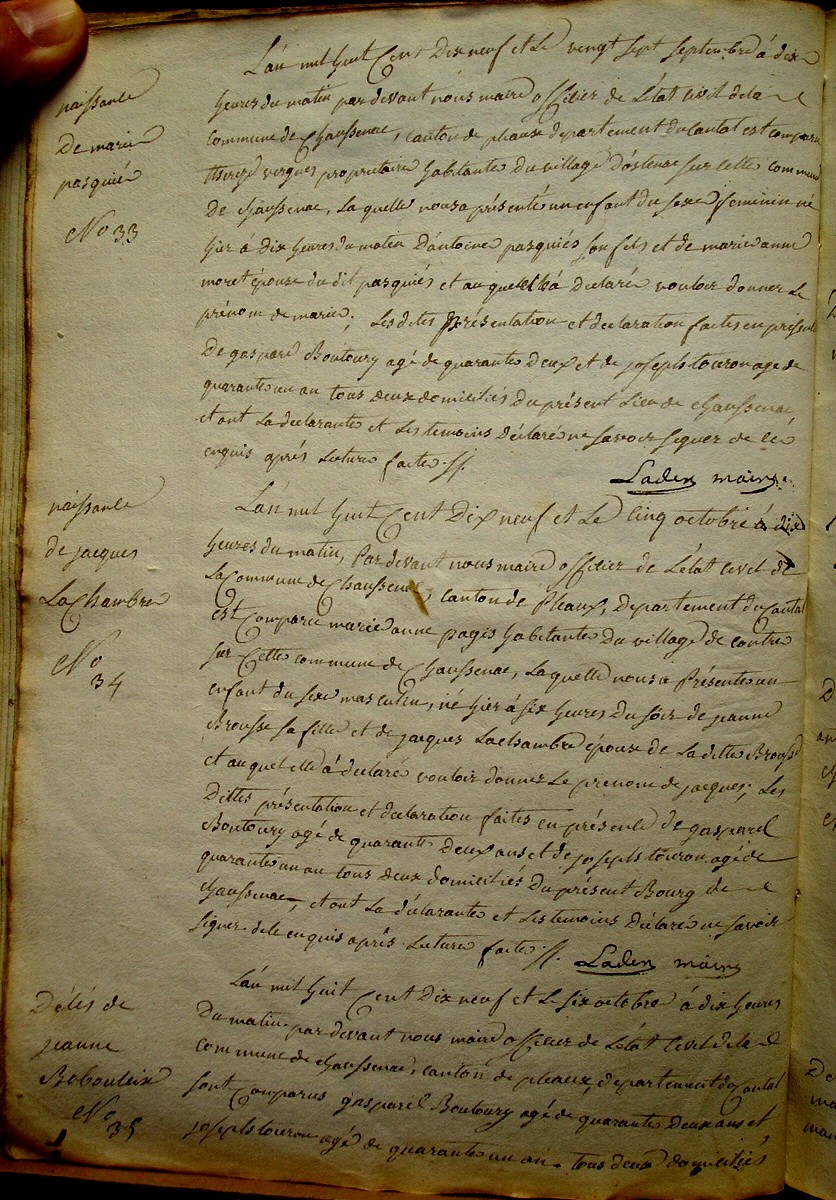 naissance
De marie
pasquiés
No 33
L'an mil huit Cent Dix neuf et Le vingt sept septembre à dix
heures du matin par devant nous maire officier de L'état civil de la
commune de Chaussenac, canton de pleaux departement du Cantal est comparu
vergnes propriettaire habitante du village D'ostenac sur cette commune
De Chaussenac, La quelle nous a présenté un enfant du sexe feminin né
hier à dix heures du matin D'antoine pasquiés son fils et de marie anne
moret épouse du dit pasquiés et auquel elle à Declaré vouloir donner Le
prénom de marie; Les dites présentation et declaration faites en présence
De gasparel Boutoury agé de quarante Deux et de joseph touron age de
quarante un an tous deux domiciliés Du présent Lieu de chaussenac,
et ont La declarante et Les temoins Déclaré ne savoir signer de ce
enquis aprés Lecture faite //.
Laden maire
naissance
de jacques
LaChambre
No
34
L'an mil huit Cent Dix neuf et Le Cinq octobre à dix
heures du matin, Par devant nous maire officier de L'état Civil de
La Commune de Chaussenac, canton de Pleaux, Departement du Cantal
est Comparu marie anne pagis habitante Du village de contre
sur Cette commune de Chaussenac, Laquelle nous a Présenté un
enfant du sexe masculin, né hier à six heures Du soir de jeanne
Brousse sa fille et de jacques Lachambre épouse de La ditte Brousse
et auquel elle à declaré vouloir donner Le prenom de jacques; Les
Dittes présentation et declaration faites en présence de gasparel
Boutoury agé de quarante Deux ans et de joseph touron agé de
quarante un an tous deux domiciliés Du présent Bourg de
Chaussenac, et ont La déclarante et Les temoins Déclaré ne savoir
signer de ce enquis aprés Lecture faite //.
Laden maire
Décés de
jeanne
Bobouleix
No 35
L'an mil huit Cent Dix neuf et Le six octobre à dix heures
Du matin par devant nous maire officier de L'état Civil de la
commune de chaussenac, canton de pleaux, departement du Cantal
sont Comparus gasparel Boutoury agé de quarante Deux ans et
joseph touron agé de quarante un an tous deux domiciliés